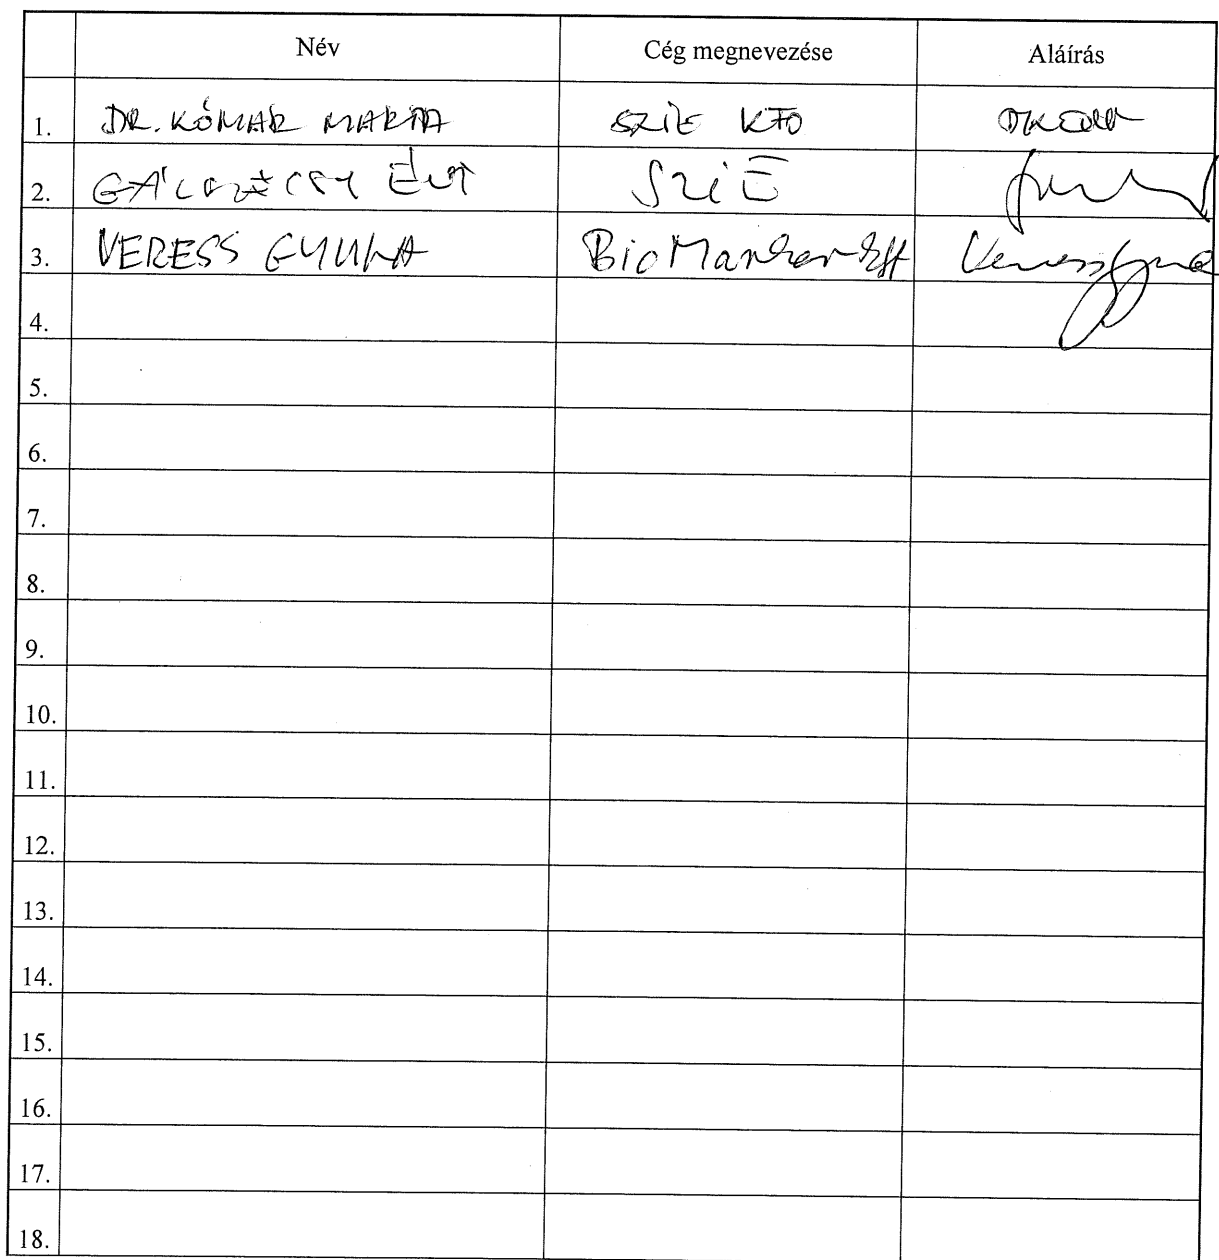 Név Cég megnevezése Aláírás
1. DR. KÓMÁR MARTA SZIE KTO
2. SZIE
3. VERESS GYULA BioMarker Kft Veress Gyula
4.
5.
6.
7.
8.
9.
10.
11.
12.
13.
14.
15.
16.
17.
18.